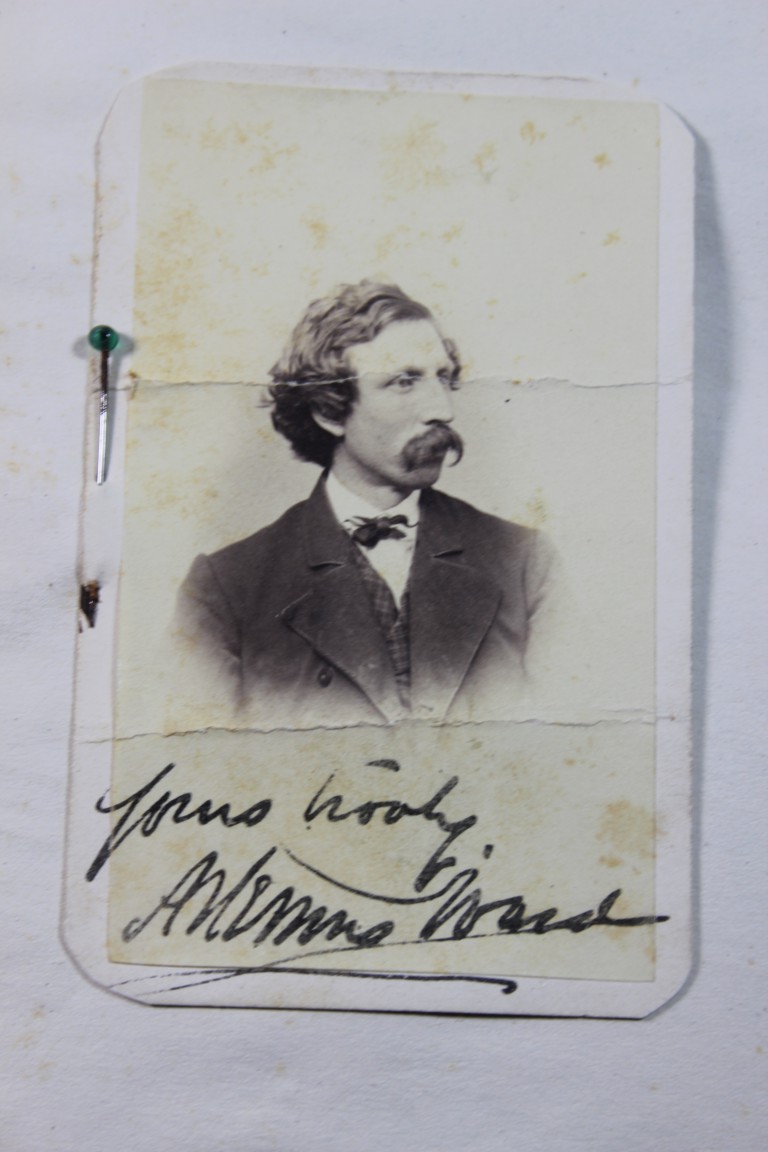 Yours trooly,
Artemus Ward